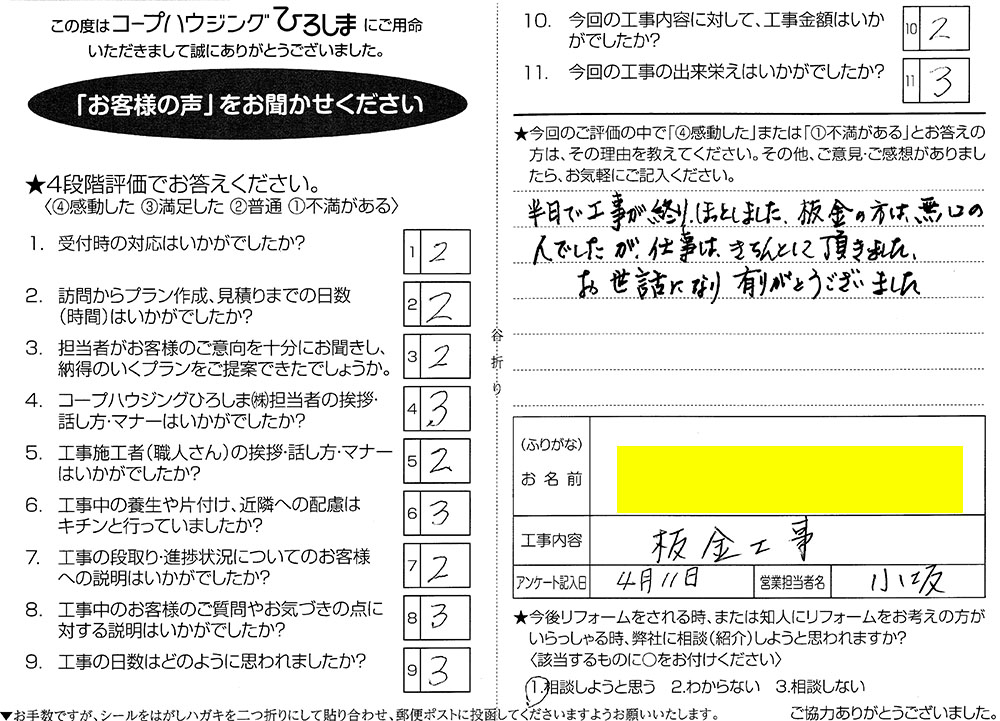 この度はコープハウジングひろしまにご用命
いただきまして誠にありがとうございました。
「お客様の声」をお聞かせください
★4段階評価でお答えください。
〈④感動した ③満足した ②普通 ①不満がある〉
1. 受付時の対応はいかがでしたか？
1 2
2. 訪問からプラン作成、見積りまでの日数
（時間）はいかがでしたか？
2 2
3. 担当者がお客様のご意向を十分にお聞きし、
納得のいくプランをご提案できたでしょうか。
3 2
4. コープハウジングひろしま㈱担当者の挨拶・
話し方・マナーはいかがでしたか？
4 3
5. 工事施工者（職人さん）の挨拶・話し方・マナー
はいかがでしたか？
5 2
6. 工事中の養生や片付け、近隣への配慮は
キチンと行っていましたか？
6 3
7. 工事の段取り・進捗状況についてのお客様
への説明はいかがでしたか？
7 2
8. 工事中のお客様のご質問やお気づきの点に
対する説明はいかがでしたか？
8 3
9. 工事の日数はどのように思われましたか？
9 3
▼お手数ですが、シールをはがしハガキを二つ折りにして貼り合わせ、郵便ポストに投函してくださいますようお願いいたします。
谷折り
10. 今回の工事内容に対して、工事金額はいか
がでしたか？
10 2
11. 今回の工事の出来栄えはいかがでしたか？
11 3
★今回のご評価の中で「④感動した」または「①不満がある」とお答えの
方は、その理由を教えてください。その他、ご意見・ご感想がありまし
たら、お気軽にご記入ください。
半日で工事が終り、ほっとしました、板金の方は、無口の
人でしたが、仕事は、きちんとして頂きました、
お世話になり 有りがとうございました
（ふりがな）
お名前
工事内容 板金工事
アンケート記入日 4月11日 営業担当者名 小坂
★今後リフォームをされる時、または知人にリフォームをお考えの方が
いらっしゃる時、弊社に相談（紹介）しようと思われますか？
〈該当するものに○をお付けください〉
1.相談しようと思う 2.わからない 3.相談しない
ご協力ありがとうございました。